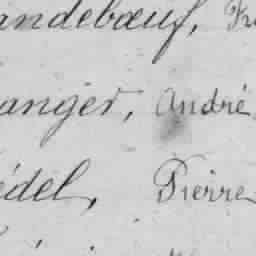 andebœuf, Fr
anger, André
édel, Pierre